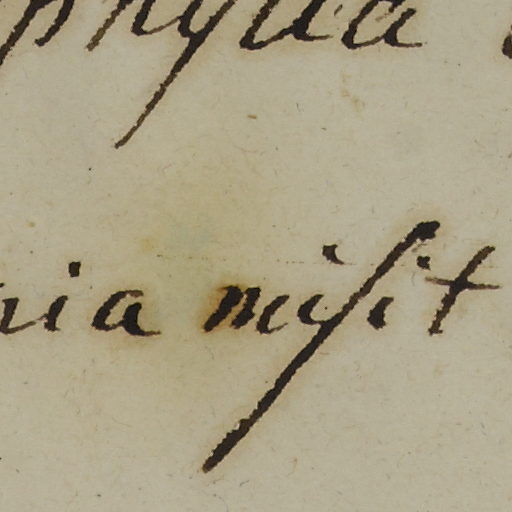 phylla
nia misit